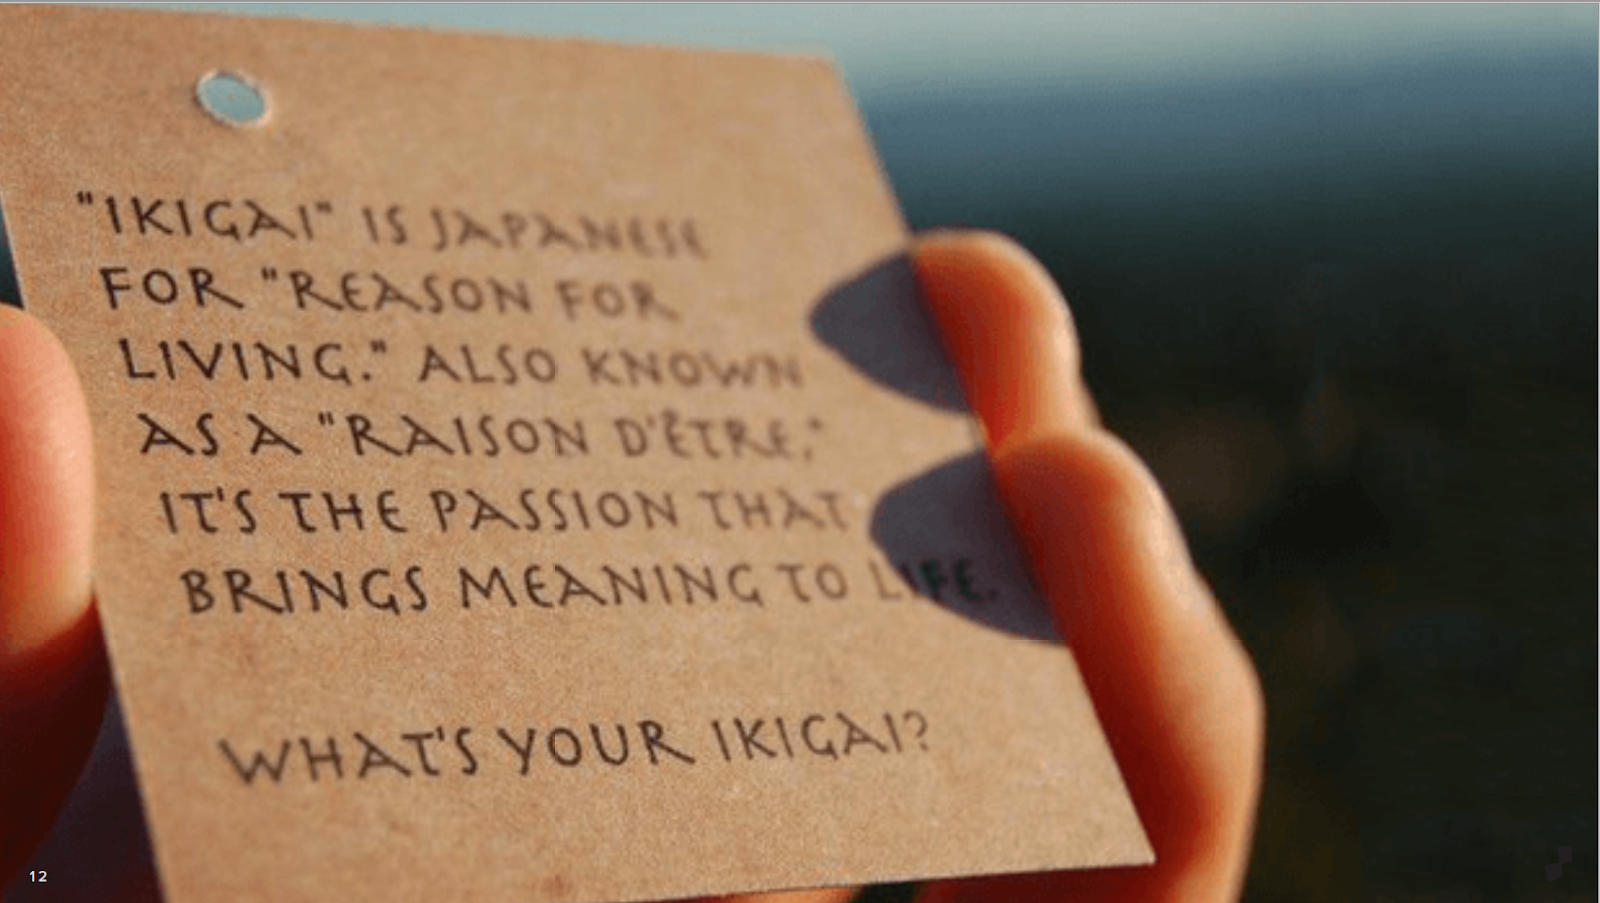 "IKIGAI" IS JAPANESE
FOR "REASON FOR
LIVING." ALSO KNOWN
AS A "RAISON D'ÊTRE,"
IT'S THE PASSION THAT
BRINGS MEANING TO LIFE.
WHAT'S YOUR IKIGAI?
12